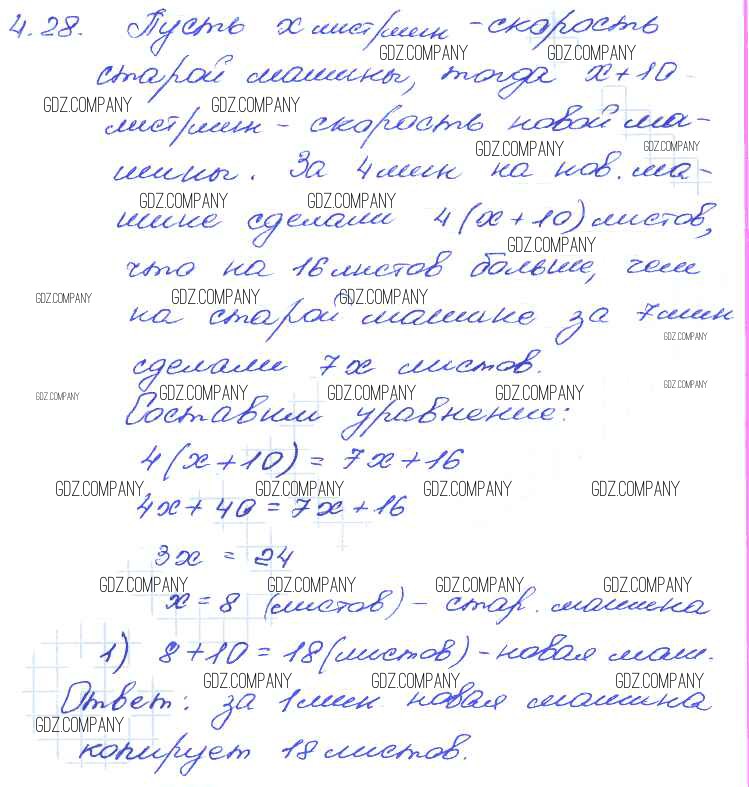 4.28. Пусть x лист/мин - скорость
GDZ.COMPANY GDZ.COMPANY
старой машины, тогда x+10
GDZ.COMPANY GDZ.COMPANY
лист/мин - скорость новой ма-
GDZ.COMPANY GDZ.COMPANY
шины. За 4 мин на нов. ма-
GDZ.COMPANY GDZ.COMPANY
шине сделали 4(x+10) листов,
GDZ.COMPANY
что на 16 листов больше, чем
GDZ.COMPANY GDZ.COMPANY GDZ.COMPANY
на старой машине за 7 мин
GDZ.COMPANY
сделали 7x листов.
GDZ.COMPANY GDZ.COMPANY GDZ.COMPANY GDZ.COMPANY GDZ.COMPANY
Составим уравнение:
4(x+10) = 7x+16
GDZ.COMPANY GDZ.COMPANY GDZ.COMPANY GDZ.COMPANY
4x+40=7x+16
3x = 24
GDZ.COMPANY GDZ.COMPANY GDZ.COMPANY GDZ.COMPANY
x=8 (листов) - стар. машина
1) 8+10=18 (листов) - новая маш.
GDZ.COMPANY GDZ.COMPANY GDZ.COMPANY
Ответ: за 1 мин новая машина
GDZ.COMPANY
копирует 18 листов.